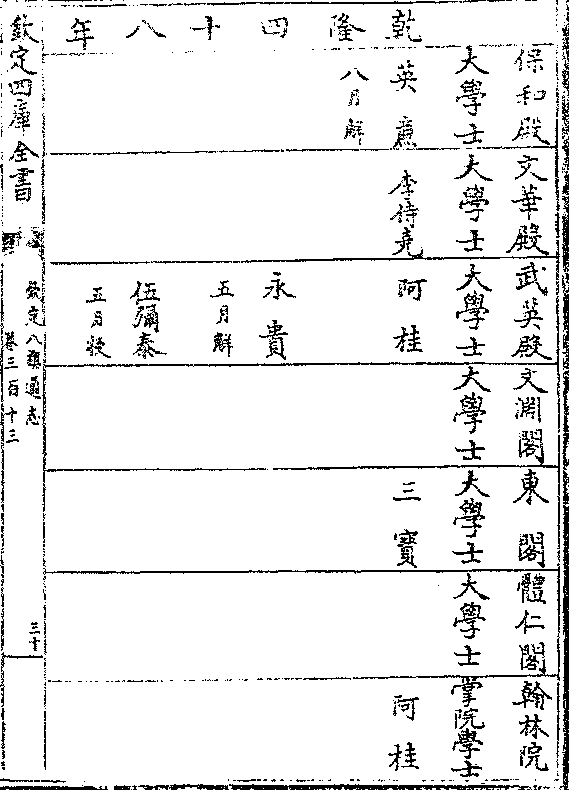 乾隆四十八年
保和殿
大學士
英廉
八月解
文華殿
大學士
李侍堯
武英殿
大學士
阿桂
永貴
五月解
伍彌泰
五月授
文淵閣
大學士
東閣
大學士
三寶
體仁閣
大學士
翰林院
掌院學士
阿桂
欽定四庫全書
欽定八旗通志
卷三百十三
三十